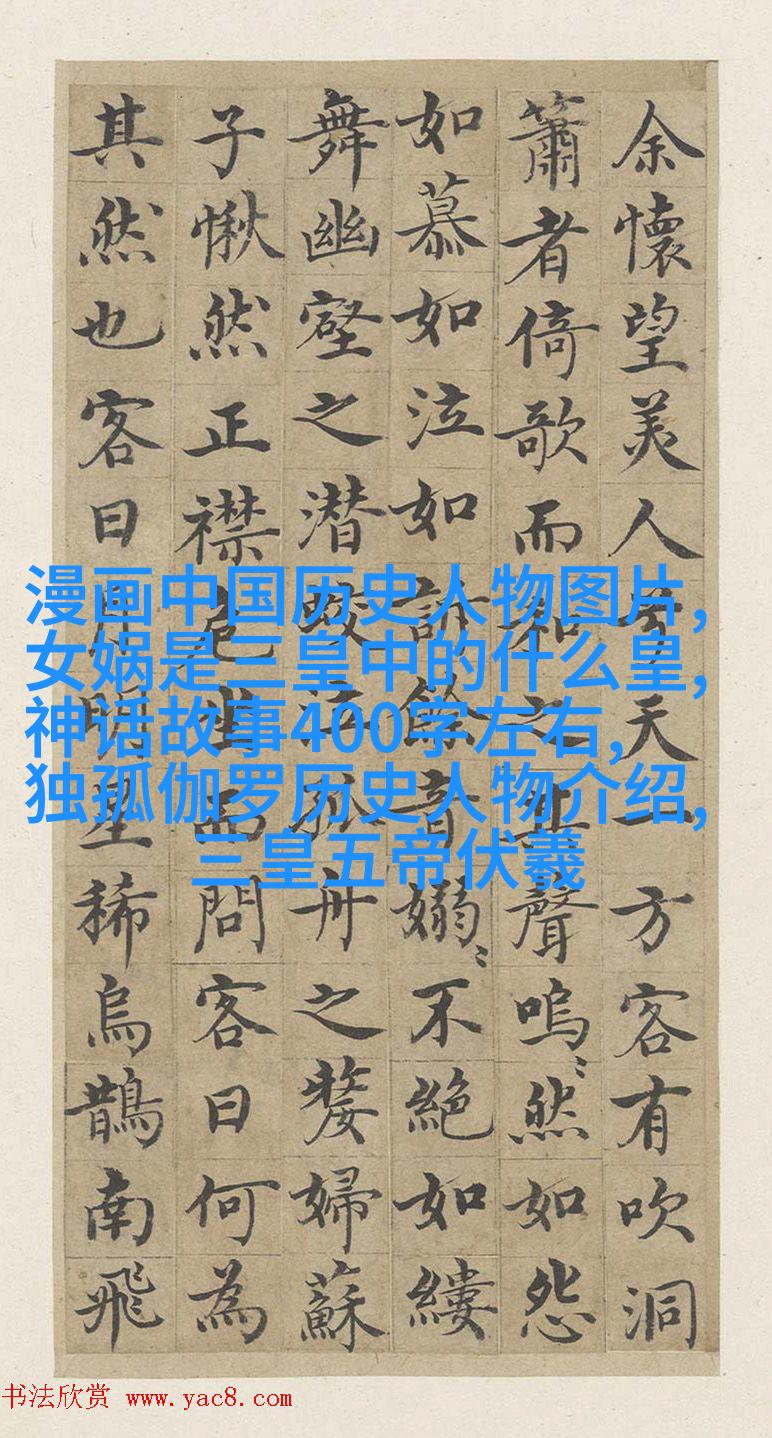 余懷望美人兮天一方客有吹洞
簫者倚歌而和之其聲嗚〻然如怨
如慕如泣如訴餘音嫋〻不絕如縷
舞幽壑之潛蛟泣孤舟之嫠婦蘇
子愀然正襟危坐而問客曰何為
其然也客曰月明星稀烏鵲南飛
漫画中国历史人物图片,
女娲是三皇中的什么皇,
神话故事400字左右,
独孤伽罗历史人物介绍,
三皇五帝伏羲
书法欣赏 www.yac8.com